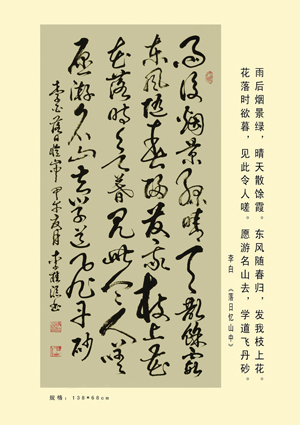 雨后烟景绿，晴天散馀霞。东风随春归，发我枝上花。
花落时欲暮，见此令人嗟。愿游名山去，学道飞丹砂。
李白 （落日忆山中）
雨後烟景绿晴天散餘霞
东风随春归发我枝上花
花落时欲暮见此令人嗟
愿游名山去学道飞丹砂
李白落日忆山中 甲午夏月 李桂书
规格：138*68cm